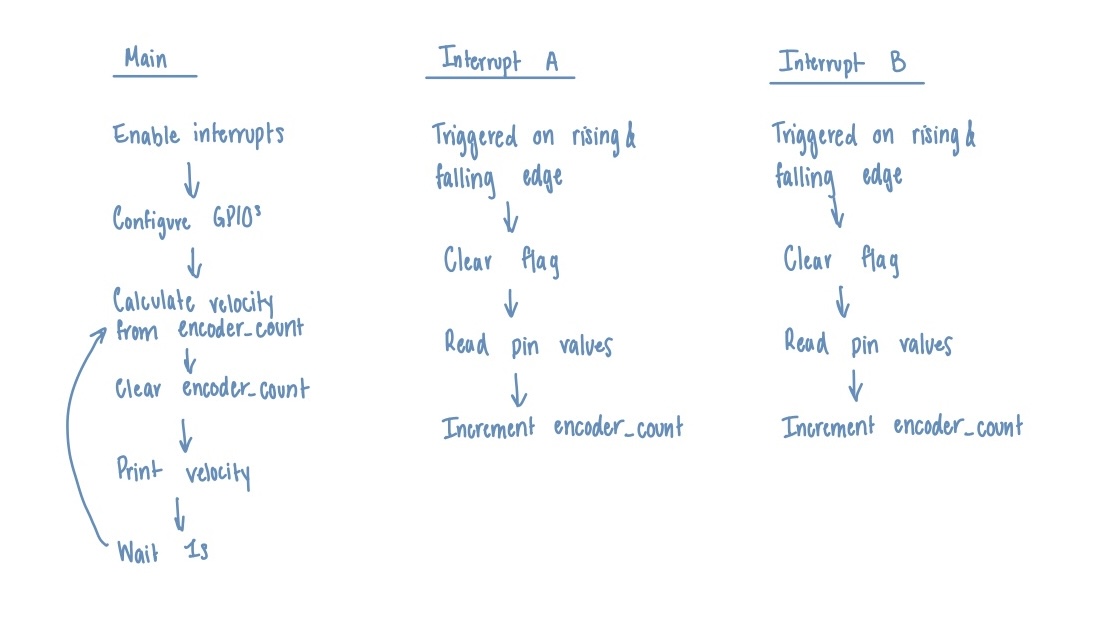 Main
Enable interrupts
Configure GPIOs
Calculate velocity
from encoder_count
Clear encoder_count
Print velocity
Wait 1s
Interrupt A
Triggered on rising &
falling edge
Clear flag
Read pin values
Increment encoder_count
Interrupt B
Triggered on rising &
falling edge
Clear flag
Read pin values
Increment encoder_count